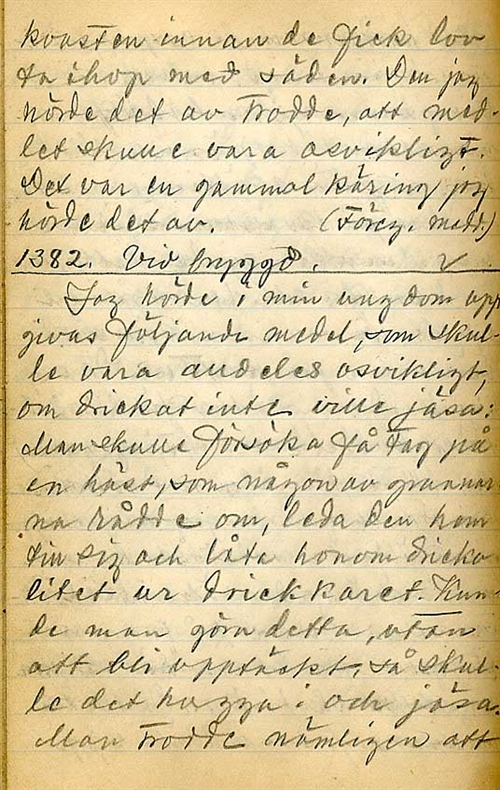 kvasten innan de fick lov
ta ihop med säden. Den jag
hörde det av trodde, att med-
let skulle vara osvikligt.
Det var en gammal käring jag
hörde det av. (Föreg. medd.)
1382. Vid brygd.
Jag hörde i min ungdom upp
givas följande medel, som skul-
le vara alldeles osvikligt,
om drickat inte ville jäsa:
Man skulle försöka få tag på
en häst, som någon av grannar
na rådde om, leda den hem
till sig och låta honom dricka
litet ur drickkaret. Kun-
de man göra detta, utan
att bli upptäckt, så skul-
le det hugga i och jäsa.
Man trodde nämligen att